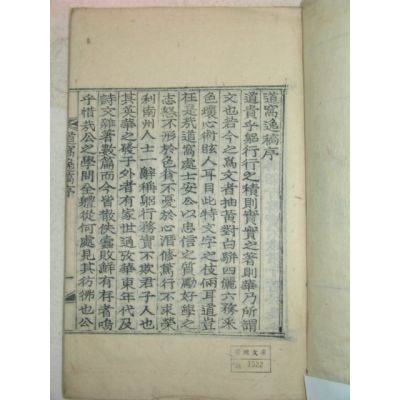 道窩逸稿序
道貴乎躬行行之積則實實之著則華乃所謂
文也若今之爲文者抽黃對白騈四儷六務采
色壞心術眩人耳目此特文字之伎倆耳道豈
在是哉道窩處士安公以忠信之質勵好學之
志怒不形於色貧不憂於心潛修篤行不求榮
利南州人士一辭稱躬行務實不欺君子人也
其英華之發于外者有家世通攷華東年代及
詩文雜著數篇而今皆散佚蠹敗鮮有存者嗚
乎惜哉公之學問全體從何處見其彷彿也公
道窩逸稿序 一
文庫
1522